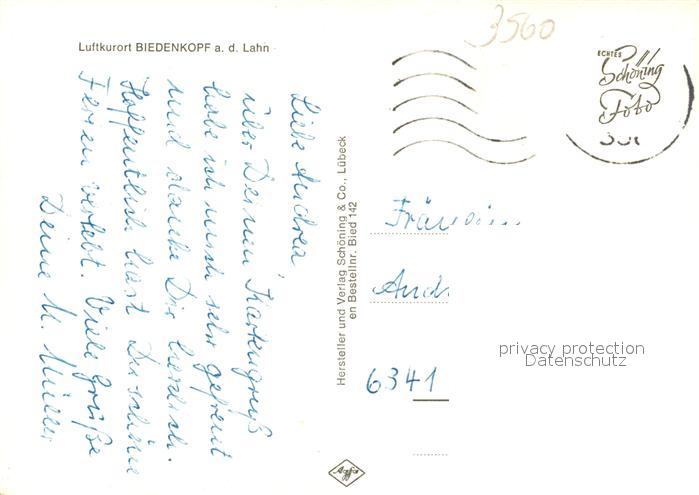 Luftkurort BIEDENKOPF a. d. Lahn
Liebe Andrea,
über Deinen Kartengruß
habe ich mich sehr gefreut
und danke Dir herzlich.
Hoffentlich hast Du schöne
Ferien verlebt. Viele Grüße
Deine U. Müller
Hersteller und Verlag Schöning & Co., Lübeck
en Bestellnr. Bied 142
3560
ECHTES
Schöning
Foto
Fräulein
And
6341
privacy protection
Datenschutz
Agfa